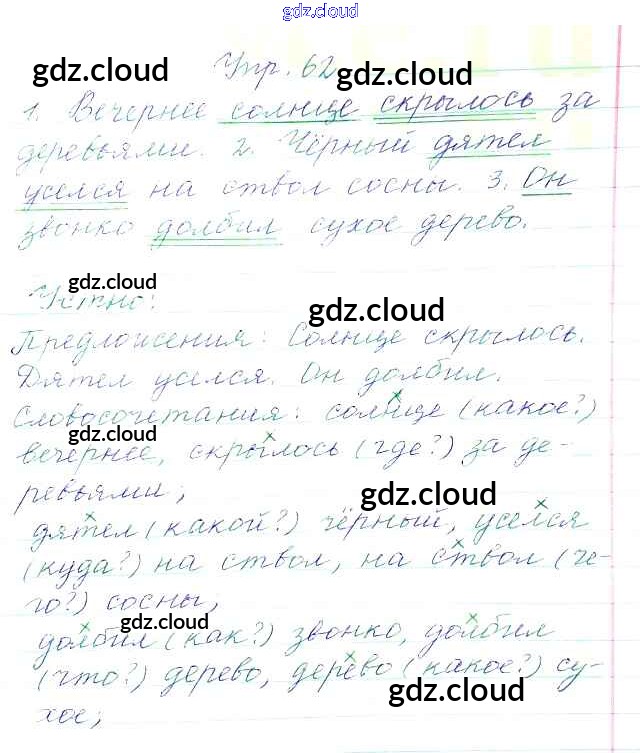 gdz.cloud
Упр. 62
gdz.cloud gdz.cloud
1. Вечернее солнце скрылось за
деревьями. 2. Чёрный дятел
уселся на ствол сосны. 3. Он
звонко долбил сухое дерево.
gdz.cloud
Устно:
gdz.cloud
Предложения: Солнце скрылось.
Дятел уселся. Он долбил.
Словосочетания: солнце (какое?)
gdz.cloud
вечернее, скрылось (где?) за де-
ревьями;
gdz.cloud
дятел (какой?) чёрный, уселся
(куда?) на ствол, на ствол (че-
го?) сосны,
gdz.cloud
долбил (как?) звонко, долбил
(что?) дерево, дерево (какое?) су-
хое;
gdz.cloud